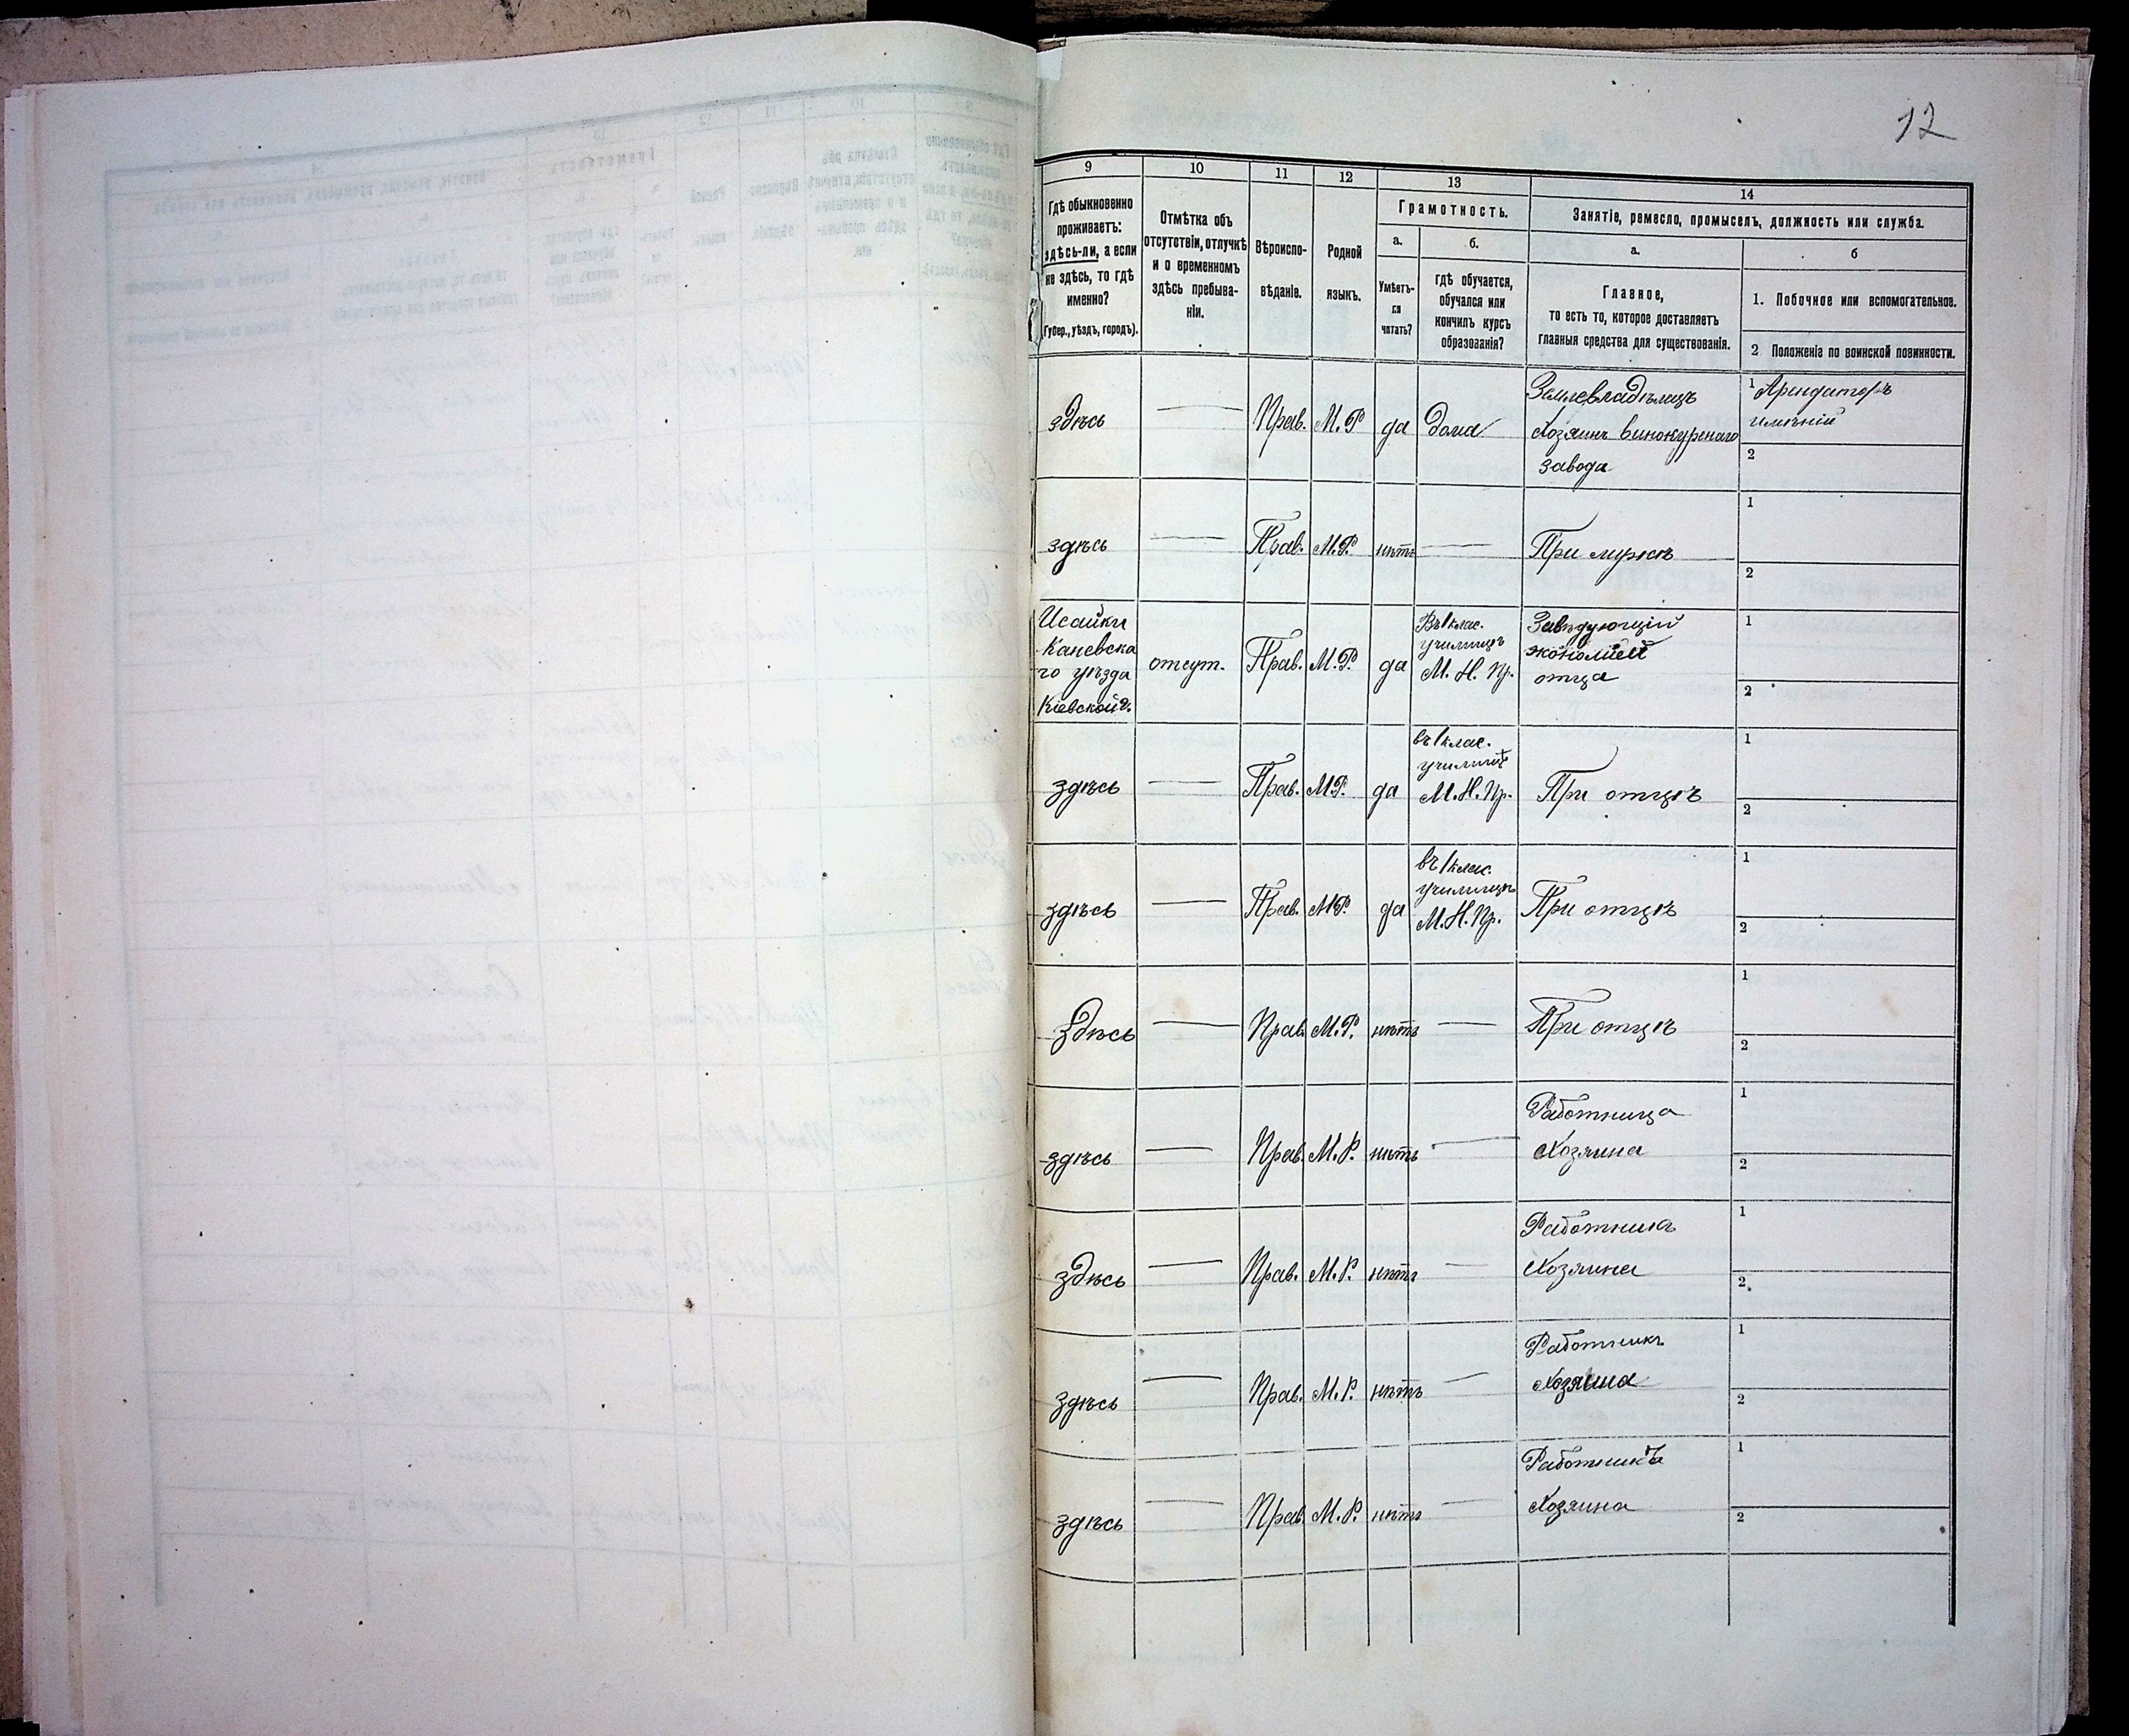 12
9
10
11
12
13
14
Гдѣ обыкновенно
проживаетъ:
здѣсь-ли, а если
не здѣсь, то гдѣ
именно?
(Губер., уѣздъ, городъ).
Отмѣтка объ
отсутствіи, отлучкѣ
и о временномъ
здѣсь пребыва-
ніи.
Вѣроиспо-
вѣданіе.
Родной
языкъ.
Грамотность.
а.
Умѣетъ-
ли
читать?
б.
гдѣ обучается,
обучался или
кончилъ курсъ
образованія?
Занятіе, ремесло, промыселъ, должность или служба.
а.
Главное,
то есть то, которое доставляетъ
главныя средства для существованія.
б
1. Побочное или вспомогательное.
2 Положенія по воинской повинности.
здѣсь
Прав.
М.Р
да
дома
Землевладѣлецъ
Хозяинъ винокуренаго
завода
1 Арендаторъ
имѣній
2
здѣсь
Прав.
М.Р.
нѣтъ
При мужѣ
1
2
Исайки
Каневска
го уѣзда
Кіевской г.
отсут.
Прав.
М.Р.
да
Въ 1 клас.
училищѣ
М. Н. Пр.
Завѣдующій
экономіей
отца
1
2
здѣсь
Прав.
М.Р.
да
въ 1 клас.
училищѣ
М.Н.Пр.
При отцѣ
1
2
здѣсь
Прав.
М.Р.
да
въ 1 клас.
училищѣ
М.Н.Пр.
При отцѣ
1
2
здѣсь
Прав.
М.Р.
нѣтъ
При отцѣ
1
2
здѣсь
Прав.
М.Р.
нѣтъ
Работница
Хозяина
1
2
здѣсь
Прав.
М.Р.
нѣтъ
Хозяина
1
2
здѣсь
Прав.
М.Р.
нѣтъ
Работникъ
Хозяина
1
2
здѣсь
Прав.
М.Р.
нѣтъ
Работникъ
Хозяина
1
2